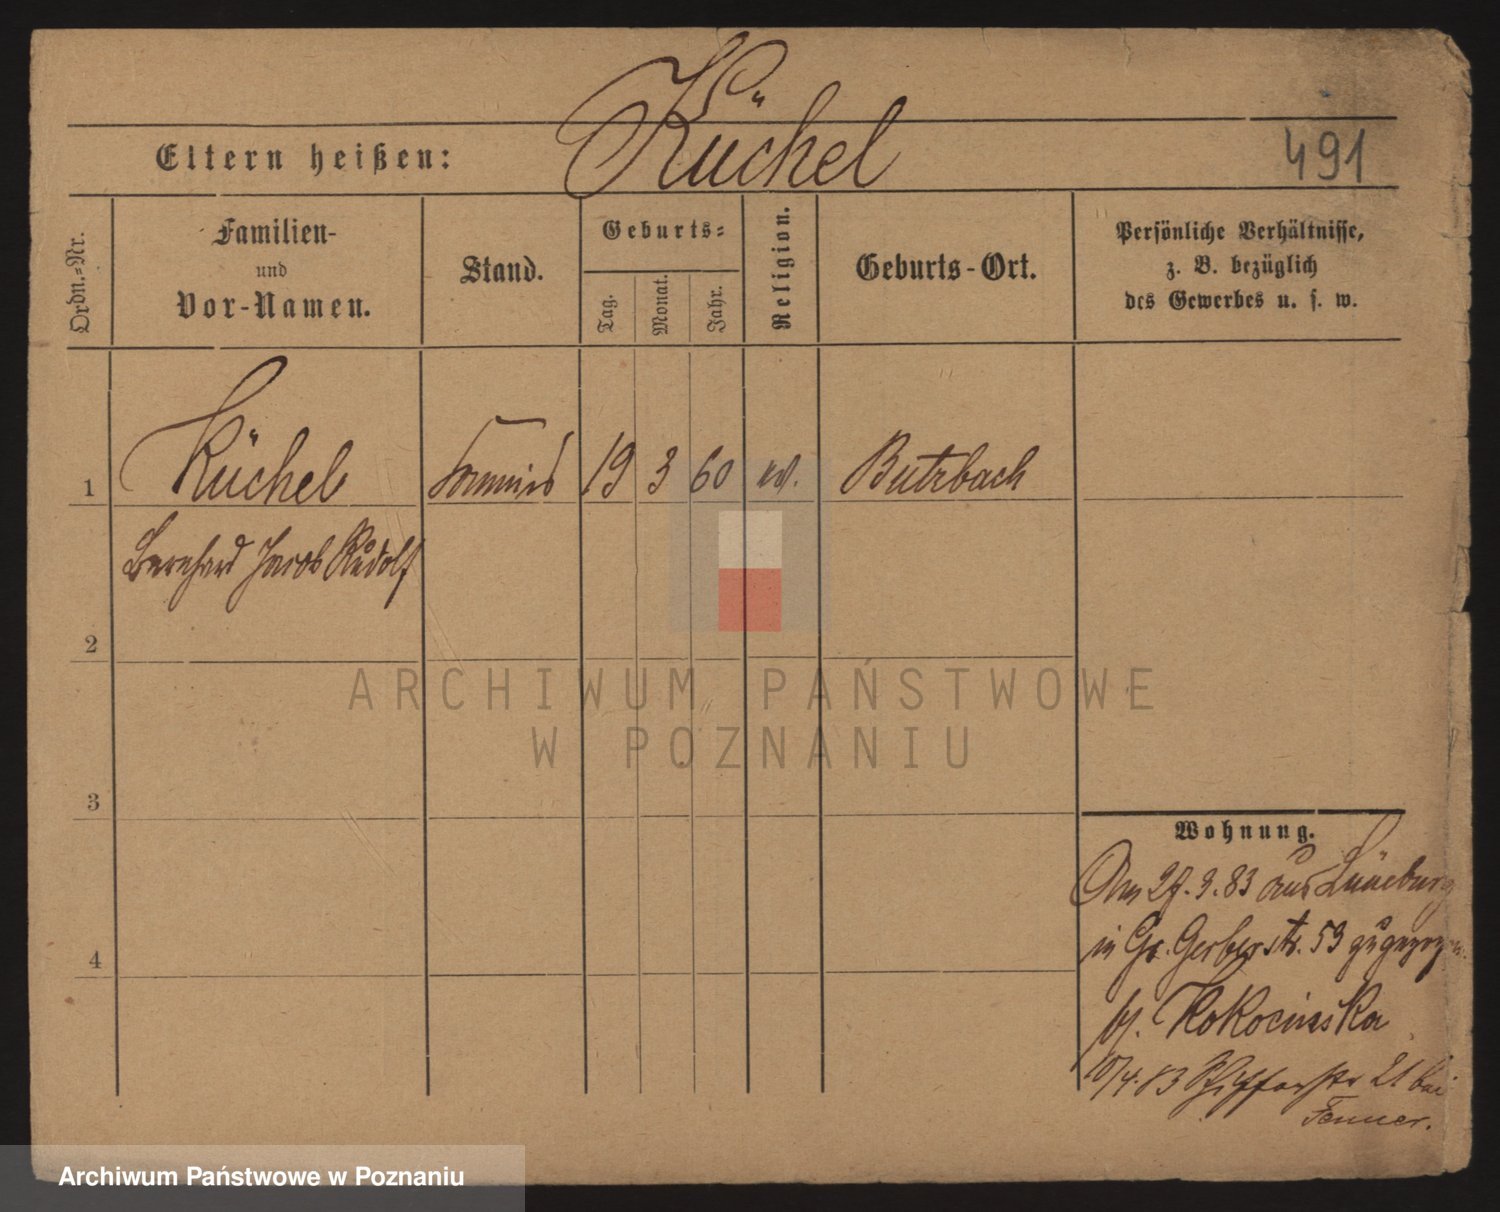 Küchel
Eltern heißen:
491
Ordn.=Nr.
Familien-
und
Vor-Namen.
Stand.
Geburts=
Tag.
Monat.
Jahr.
Religion.
Geburts-Ort.
Persönliche Verhältnisse,
z. B. bezüglich
des Gewerbes u. s. w.
1 Küchel Commis 19 3 60 ev. Butzbach
Bernhard Jacob Rudolf
2
3
4
Wohnung.
Am 27.3.83 aus Lüneburg
in Gr. Gerberstr. 53 zugezogen
bf. Kokocinska
10/4.83 21 bei
Fenner.
ARCHIWUM PAŃSTWOWE
W POZNANIU
Archiwum Państwowe w Poznaniu